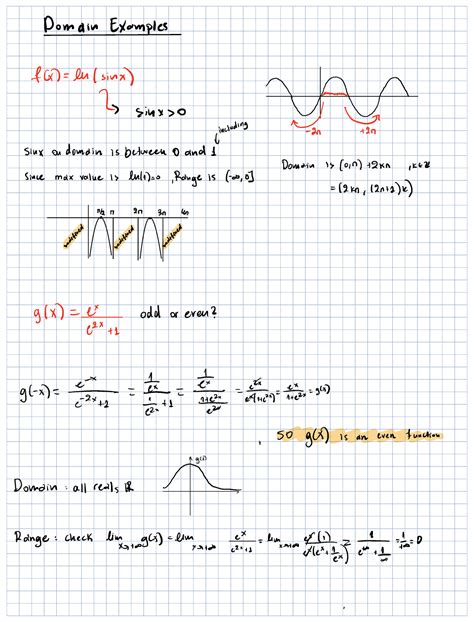 Domain Examples
f(x) = ln(sinx)
sinx>0
-2π +2π
including
sinx on domain is between 0 and 1
Since max value is ln(1)=0, Range is (-∞, 0]
Domain is (0,π) + 2kπ , k∈ℤ
= (2kπ, (2π+1)k)
π/2 π 2π 3π 4π
undefined undefined undefined
g(x) = e^x / (e^2x + 1) odd or even?
g(-x) = e^-x / (e^-2x + 1) = (1/e^x) / (1/e^2x + 1) = (1/e^x) / ((1+e^2x)/e^2x) = e^2x / (e^x(1+e^2x)) = e^x / (1+e^2x) = g(x)
, so g(x) is an even function
g(x)
Domain : all reals ℝ
Range : check lim x→+∞ g(x) = lim x→+∞ e^x / (e^2x + 1) = lim x→+∞ e^x(1) / (e^x(e^x + 1/e^x)) = 1 / (e^∞ + 1/∞) = 1/+∞ = 0